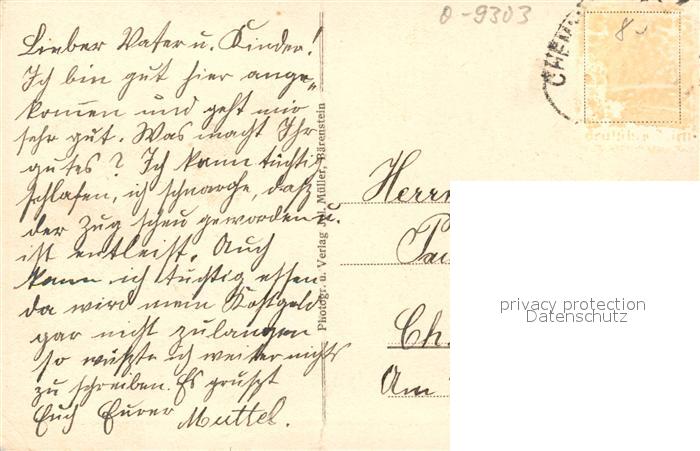 Lieber Vater u. Kinder!
Ich bin gut hier ange-
kommen und geht mir
sehr gut. Was macht Ihr
gutes? Ich kann tüchtig
schlafen, ich schnarche, daß
der Zug scheu geworden u.
ist entleist. Auch
kann ich tüchtig essen
da wird mein Kostgeld
gar nicht zulangen
so wüßte ich weiter nichts
zu schreiben. Es grüßt
Euch Eurer Muttel.
Photogr. u. Verlag Müller, Bärenstein
0-9303
CHEM
8.-
Herrn
Ch.
Am
privacy protection
Datenschutz